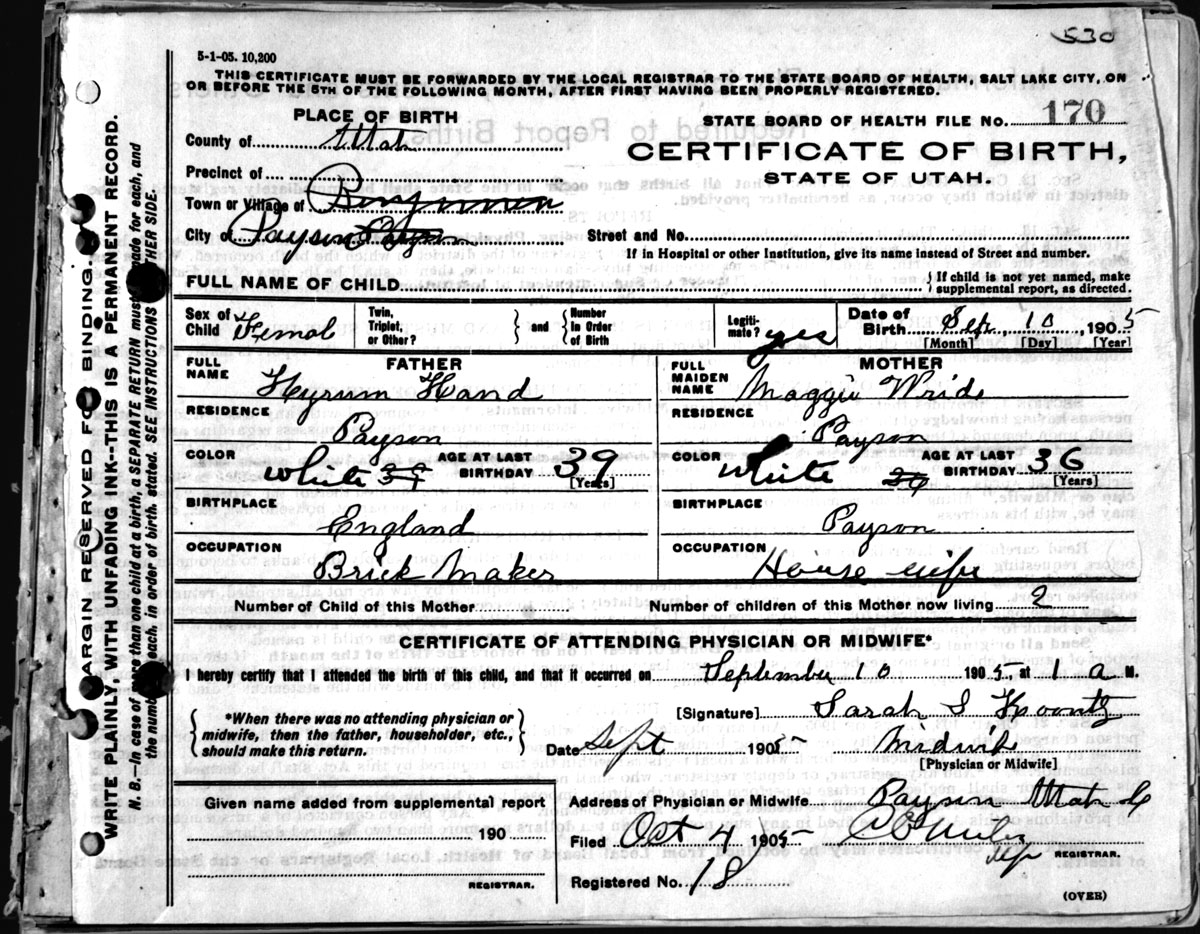 530
5-1-05. 10,200
THIS CERTIFICATE MUST BE FORWARDED BY THE LOCAL REGISTRAR TO THE STATE BOARD OF HEALTH, SALT LAKE CITY, ON
OR BEFORE THE 5TH OF THE FOLLOWING MONTH, AFTER FIRST HAVING BEEN PROPERLY REGISTERED.
PLACE OF BIRTH
STATE BOARD OF HEALTH FILE NO. 170
County of Utah
CERTIFICATE OF BIRTH,
STATE OF UTAH.
Precinct of
Town or Village of
City of Payson
Street and No.
If in Hospital or other Institution, give its name instead of Street and number.
FULL NAME OF CHILD
If child is not yet named, make supplemental report, as directed.
Sex of Child Femal
Twin, Triplet, or Other? and Number in Order of Birth
Legitimate? yes
Date of Birth Sep. 10, 1905
[Month] [Day] [Year]
FATHER
MOTHER
FULL NAME Hyrum Hand
FULL MAIDEN NAME Maggie Wride
RESIDENCE Payson
RESIDENCE Payson
COLOR white AGE AT LAST BIRTHDAY 39 [Years]
COLOR white AGE AT LAST BIRTHDAY 36 [Years]
BIRTHPLACE England
BIRTHPLACE Payson
OCCUPATION Brick Maker
OCCUPATION House wife
Number of Child of this Mother
Number of children of this Mother now living 2
CERTIFICATE OF ATTENDING PHYSICIAN OR MIDWIFE*
I hereby certify that I attended the birth of this child, and that it occurred on September 10 1905, at 1 a M.
*When there was no attending physician or
midwife, then the father, householder, etc.,
should make this return.
[Signature] Sarah S Koontz
Date Sept 1905 Midwife
[Physician or Midwife]
Given name added from supplemental report
190
REGISTRAR.
Address of Physician or Midwife Payson Utah
Filed Oct 4 1905
REGISTRAR.
Registered No. 18
(OVER)
MARGIN RESERVED FOR BINDING.
WRITE PLAINLY WITH UNFADING INK--THIS IS A PERMANENT RECORD.
N. B.—In case of more than one child at a birth, a SEPARATE RETURN must be made for each, and
the number of each, in order of birth, stated. SEE INSTRUCTIONS ON OTHER SIDE.